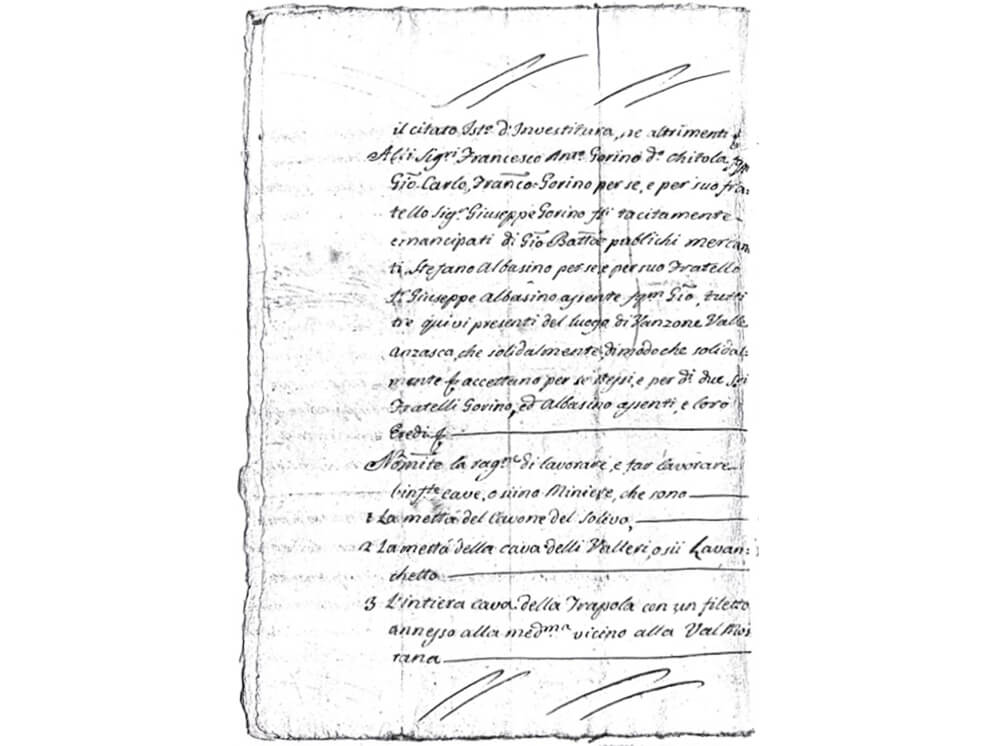 il citato Isto. d'Investitura, ne altrimenti
Alli Sigri Francesco Anto. Gorino do. Chitola
Gio. Carlo, Franco. Gorino per se, e per suo fra:
tello Sigr. Giuseppe Gorino tacitamente
emancipati di Gio Batta publichi mercan
ti, Stefano Albasino per se, e per suo Fratello
Sr. Giuseppe Albasino assente qm Gio, tutti
tre quivi presenti del luogo di Vanzone Valle
anzasca, che solidalmente, di modo che solidal:
mente accettano per se stessi, e per di. due Sri
Fratelli Gorino, ed Albasino assenti, e loro
Eredi
la ragne. di lavorare, e far lavorare
l'infte cave, o siino Miniere, che sono
1 La mettà del Cavone del Solivo,
2 La mettà della cava delli Valleri, o sii Lavan:
chetto
3 L'intiera cava della Trapola con un filetto
annesso alla medma vicino alla Val Mor
rana